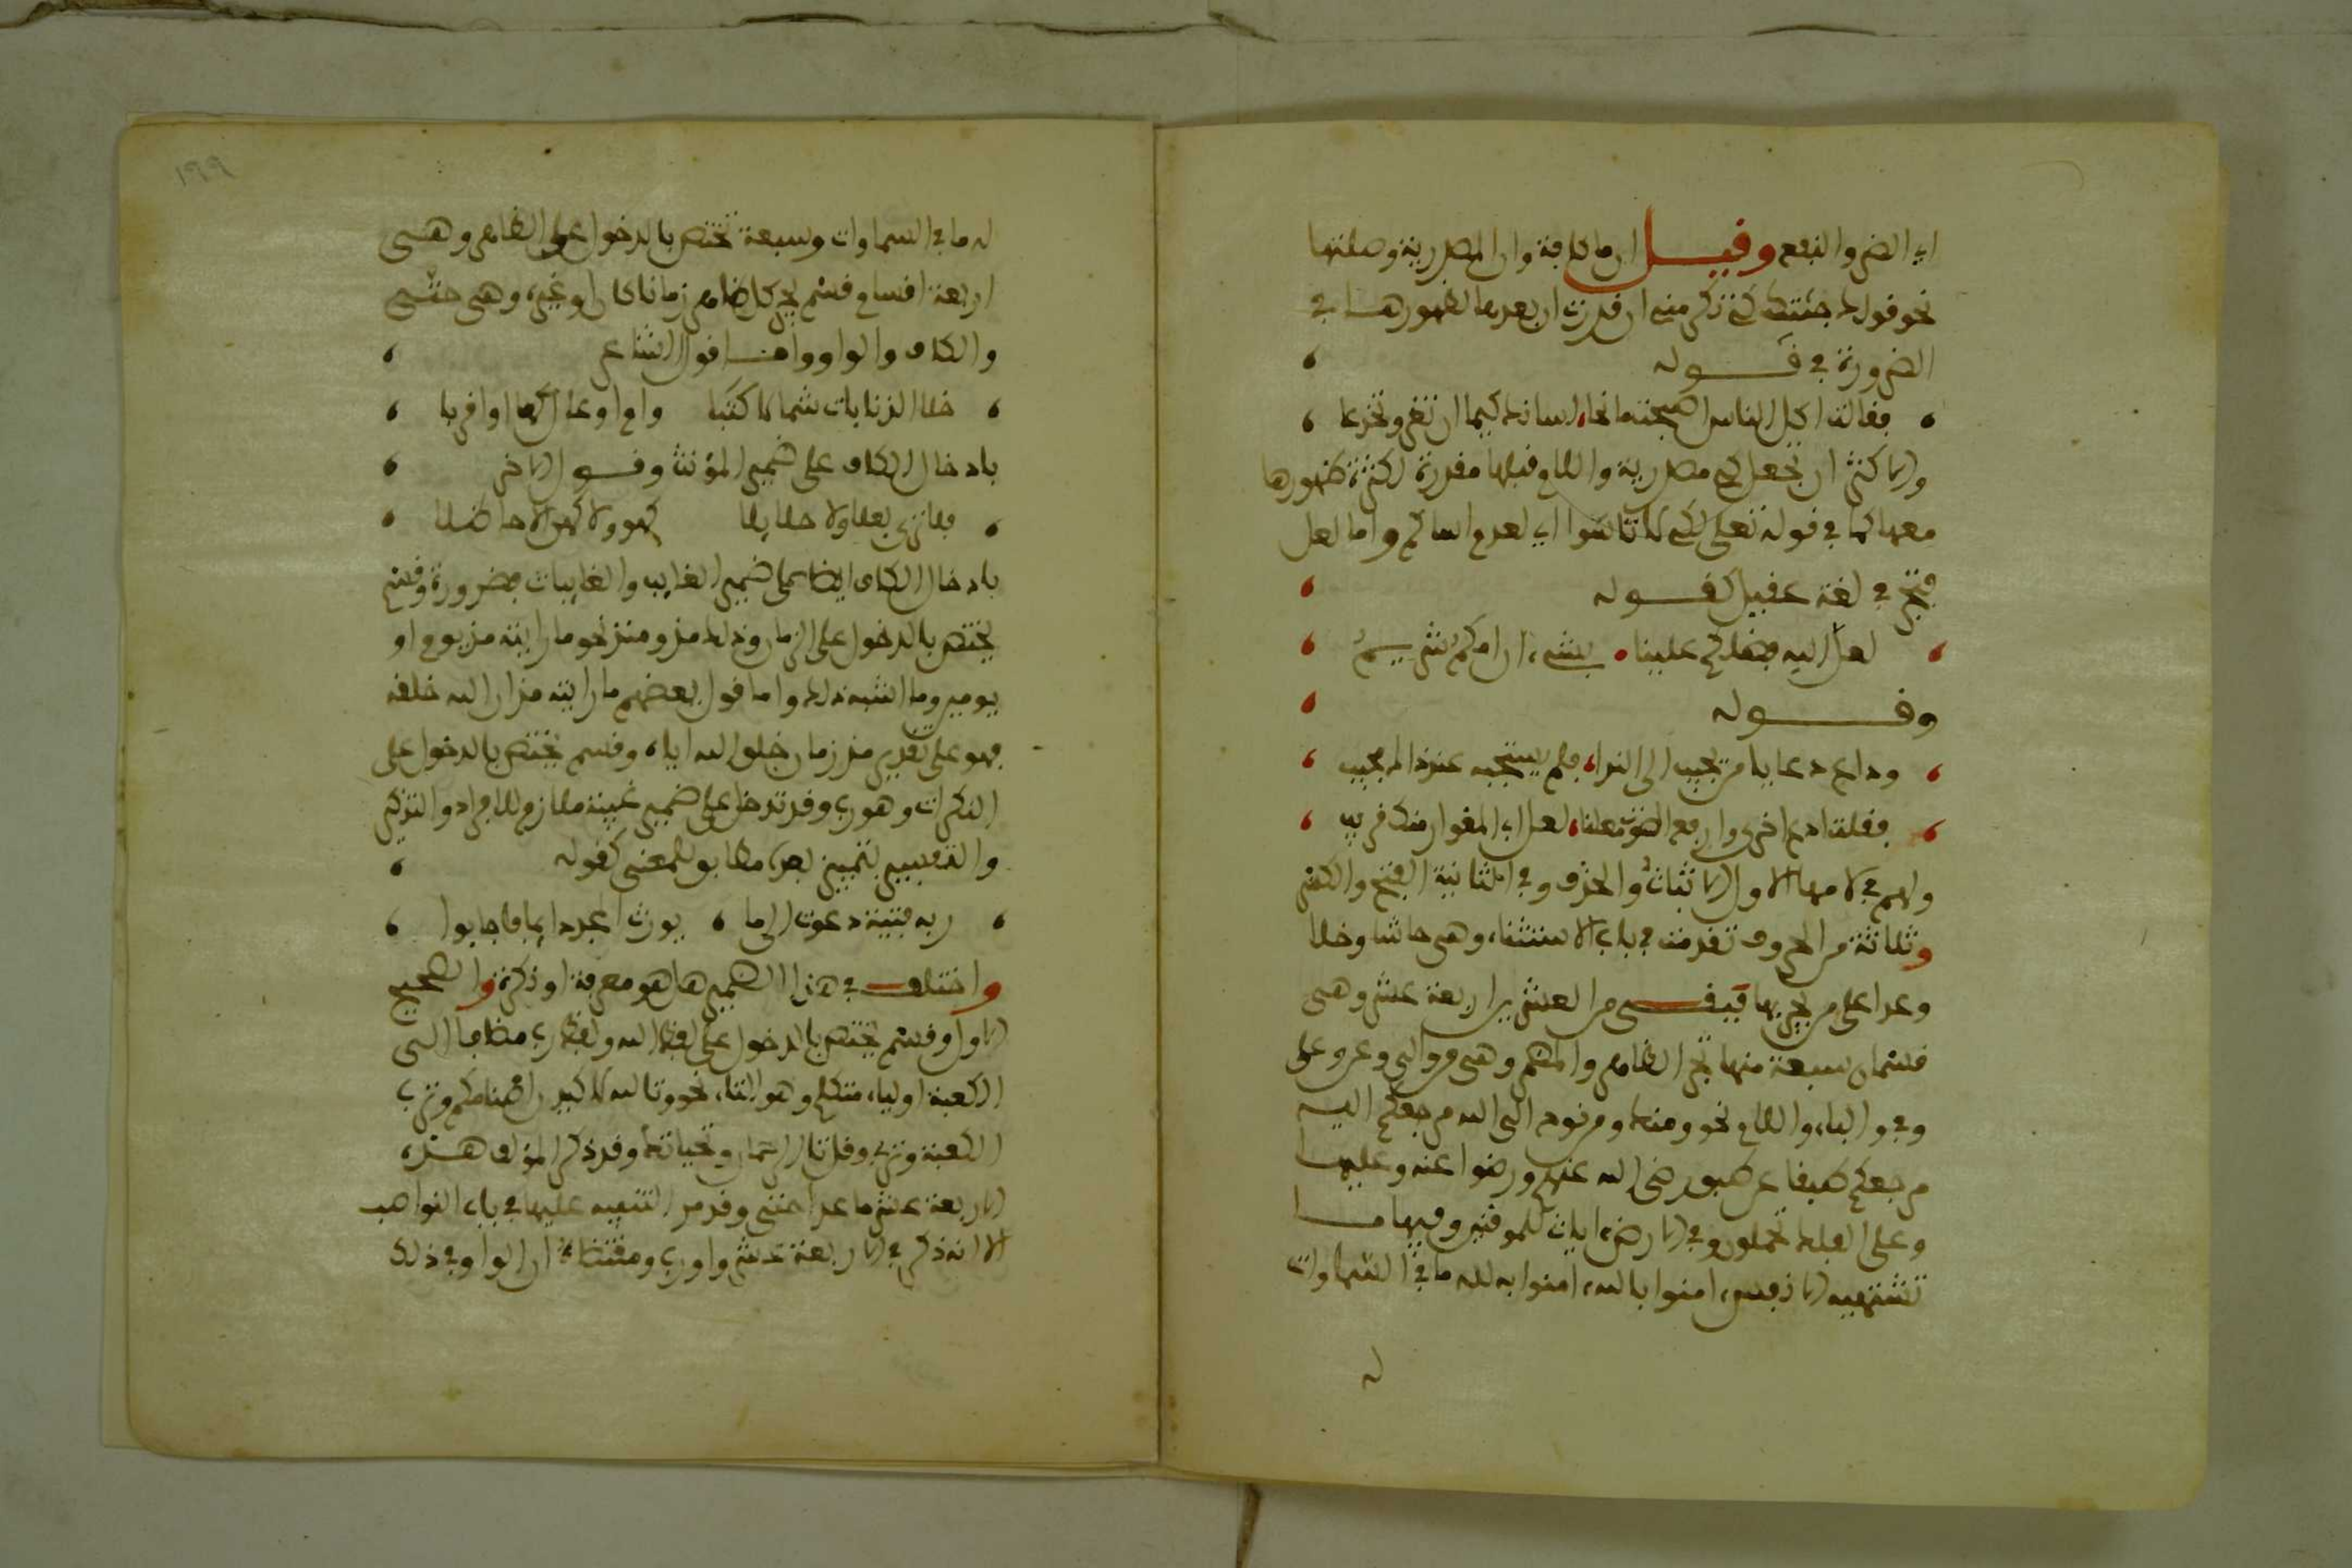 اي الضر والنفع وقيل ان ما كافة وان المصدرية وصلتها
نحو قولك جئتك كي تكرمني ان قدرت ان بعدها لظهورها في
الضرورة في قوله
فقالت اكل الناس اصبحت مانحا لسانك كيما ان تغر وتخدعا
والاكثر ان تجعل كي مصدرية واللام قبلها مقدرة لكثرة ظهورها
معها كما في قوله تعلى لكي لا تاسوا اي لعدم اساكم واما لعل
فتجر في لغة عقيل كقوله
لعل الله فضلكم علينا بشيء ان امكم شريم
وقوله
وداع دعا يا من يجيب الى الندا فلم يستجبه عند ذاك مجيب
فقلت ادع اخرى وارفع الصوت معلنا لعل ابي المغوار منك قريب
ولهم في لامها الاول الاثبات والحذف وفي الثانية الفتح والكسر
وثلاثة من الحروف تقدمت في باب الاستثناء وهي حاشا وخلا
وعدا على من يجر بها فبقي من العشرين اربعة عشر وهي
قسمان سبعة منها تجر الظاهر والمضمر وهي من والى وعن وعلى
وفي والباء واللام نحو ومنك ومن نوح الى الله مرجعكم اليه
مرجعكم طبقا عن طبق رضي الله عنهم ورضوا عنه وعليها
وعلى الفلك تحملون وفي الارض ايات للموقنين وفيها ما
تشتهيه الانفس امنوا بالله امنوا به لله ما في السماوات
له
١٩٩
له ما في السماوات وسبعة تختص بالدخول على الظاهر وهي
اربعة اقسام قسم يجر كل ظاهر زمانا كان او غيره وهي حتى
والكاف والواو واما قول الشاعر
خلا الذنابات شمالا كثبا وام اوعال كها او اقربا
بادخال الكاف على ضمير المؤنث وقول الاخر
فلا ترى بعلا ولا حلايلا كهو ولا كهن الا حاظلا
بادخال الكاف ايضا على ضمير الغايب والغايبات فضرورة وقسم
يختص بالدخول على الزمان وذلك مذ ومنذ نحو ما رايته مذ يوم او
يومين وما اشبه ذلك واما قول بعضهم ما رايته مذ ان الله خلقه
فهو على تقدير مذ زمان خلق الله اياه وقسم يختص بالدخول على
النكرات وهو رب وقد تدخل على ضمير غيبة ملازم للافراد والتذكير
والتفسير بتمييز بعده مطابق للمعنى كقوله
ربه فتية دعوت الى ما يورث المجد دايما فاجابوا
واختلف في هذا الضمير هل هو معرفة او نكرة والصحيح
الاول وقسم يختص بالدخول على لفظ الله ولفظ رب مضافا الى
الكعبة او لياء متكلم وهو التاء نحو وتالله لاكيدن اصنامكم وترب
الكعبة وتربي وقل تالرحمان وتحياتك وقد ذكر المؤلف هذه
الاربعة عشر ما عدا حتى وقد مر التنبيه عليها في باب النواصب
الا انه ذكر في الاربعة عشر واو رب ومقتضاه ان الواو في ذلك